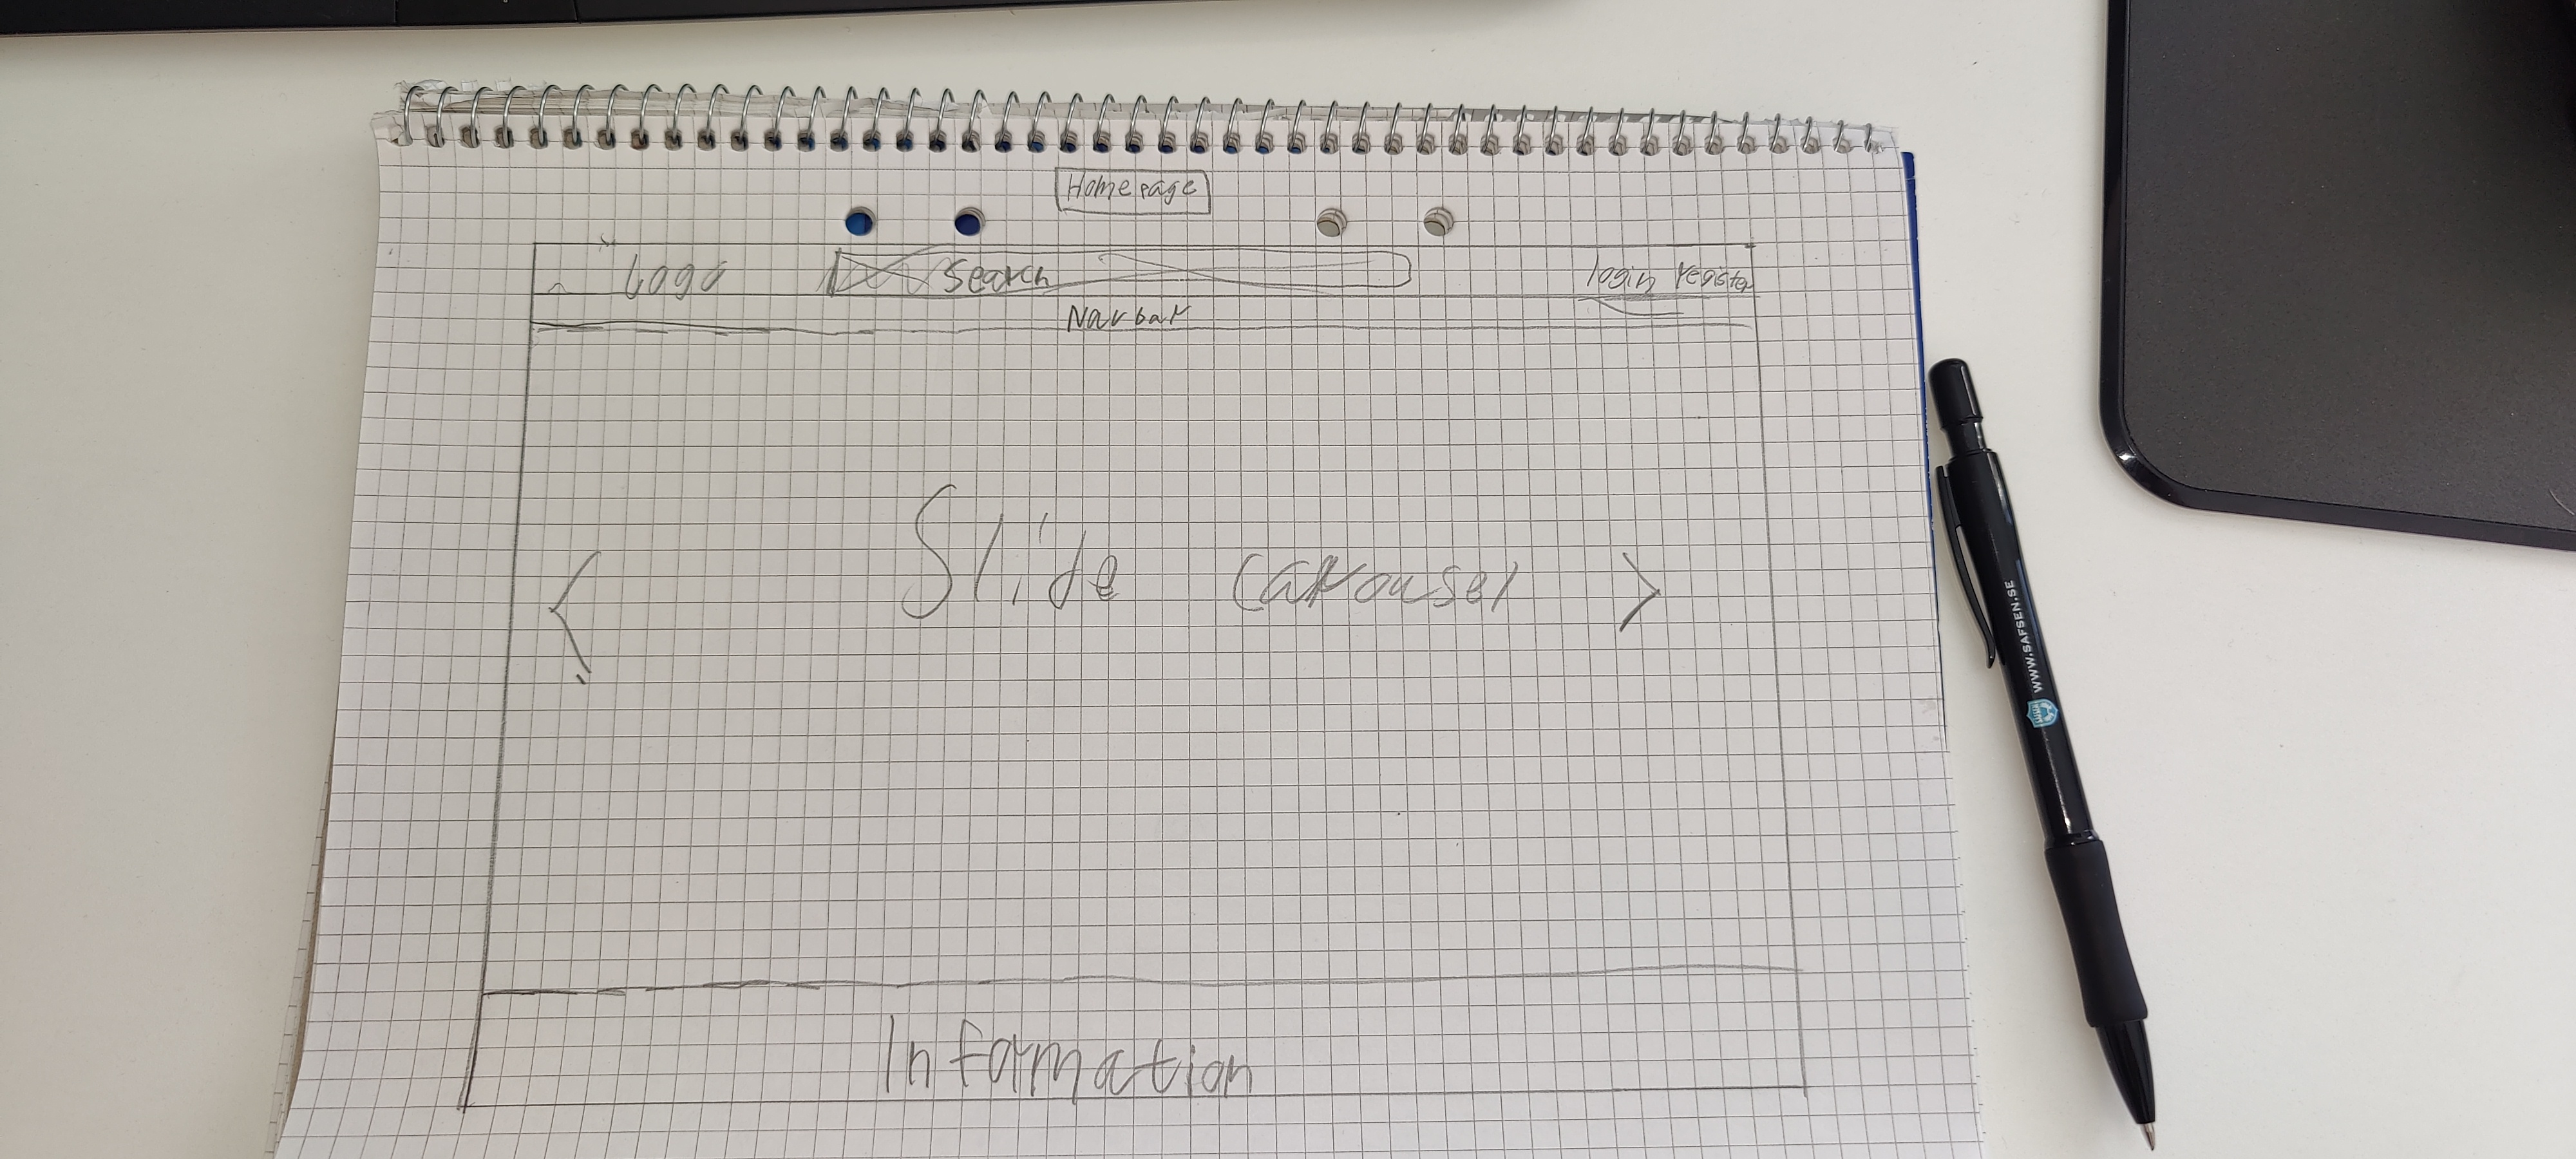 Homepage
Logo Search login register
Navbar
< Slide Carousel >
Information
WWW.SAFSEN.SE